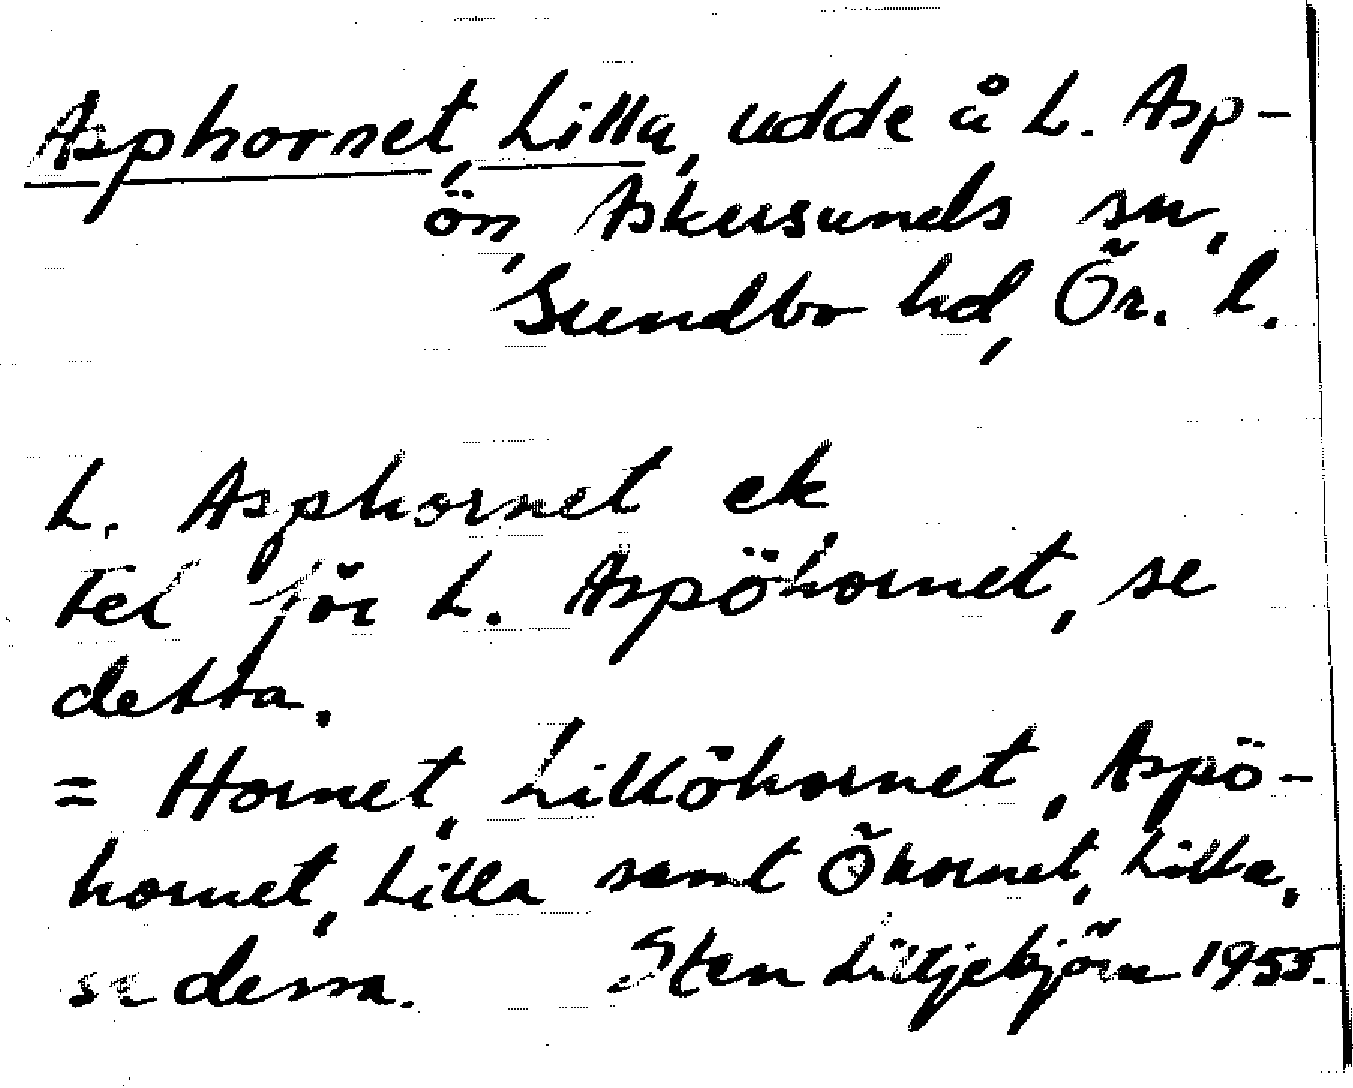 Asphornet, Lilla, udde å L. Asp-
ön, Askersunds sn,
Sundbo hd, Ör. l.
L. Asphornet ek
fel för L. Aspöhornet, se
detta.
= Hornet, Lillöhornet, Aspö-
hornet, Lilla samt Öhornet, Lilla,
se dessa. Sten Lilljebjörn 1955.